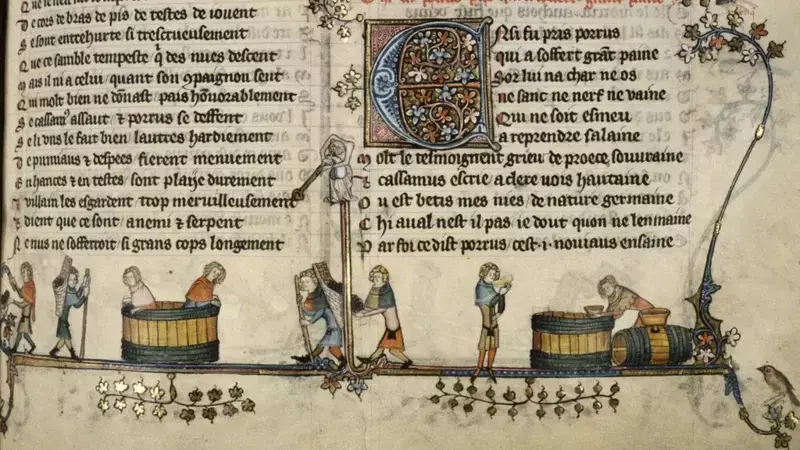 De cors de bras de pis de testes de iouent
Se sont entrehurte si tresctueusement
Que ce samble tempeste q̃ des nues descent
Mais il ni a celui / quant son ꝯpaignon sent
Qui molt bien ne donast pais hõnorablement
Se cassamꝰ assaut / ⁊ porrus se deffent
Se li vns le fait bien / lautres hardiement
De pumiaus ⁊ despees fierent menuement
En hances ⁊ en testes sont plaije durement
villain les esgardent / trop merveilleusement
dient que ce sont / anemi ⁊ serpent
Ne nus ne sofferroit si grans cops longement
Ensi fu pris porrus
qui a soffert grãt paine
Sor lui na char ne os
ne sanc ne nerf ne vaine
Qui ne soit esmeu
a reprendre salaine
Molt le tesmoignent grieu de proece souuraine
⁊ cassamus escrie / a clere vois hautaine
Ou est betis mes nies / de nature germaine
Chi aual nest il pas ie dout quon ne len maine
Par foi ce dist porrus / cest .i. nouiaus ensaine